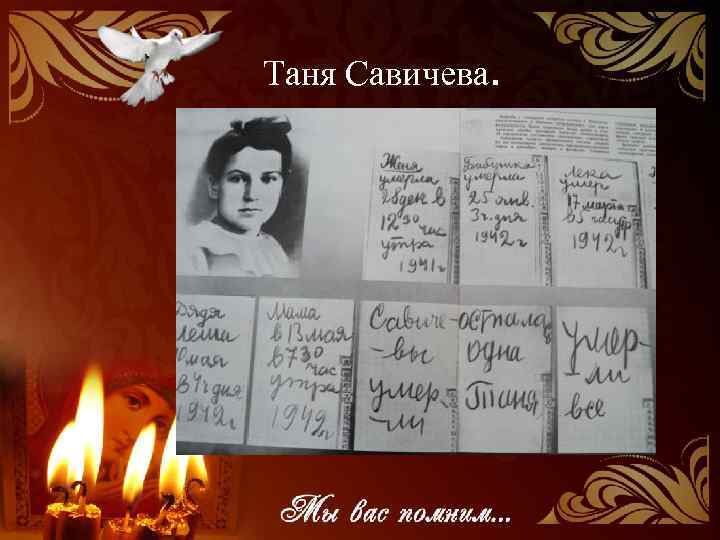 Таня Савичева.
Женя
умерла
28 дек в
12 30 час
утра
1941 г
Бабушка
умерла
25 янв.
3 ч. дня
1942 г
Лека
умер
17 марта
в 5 час утр
1942 г
Дядя
Леша
10 мая
в 4 ч дня
1942 г
Мама
в 13 мая
в 7 30
час
утра
1942 г
Савиче-
-вы
умер-
-ли
осталась
одна
Таня
умер-
ли
все
Мы вас помним...